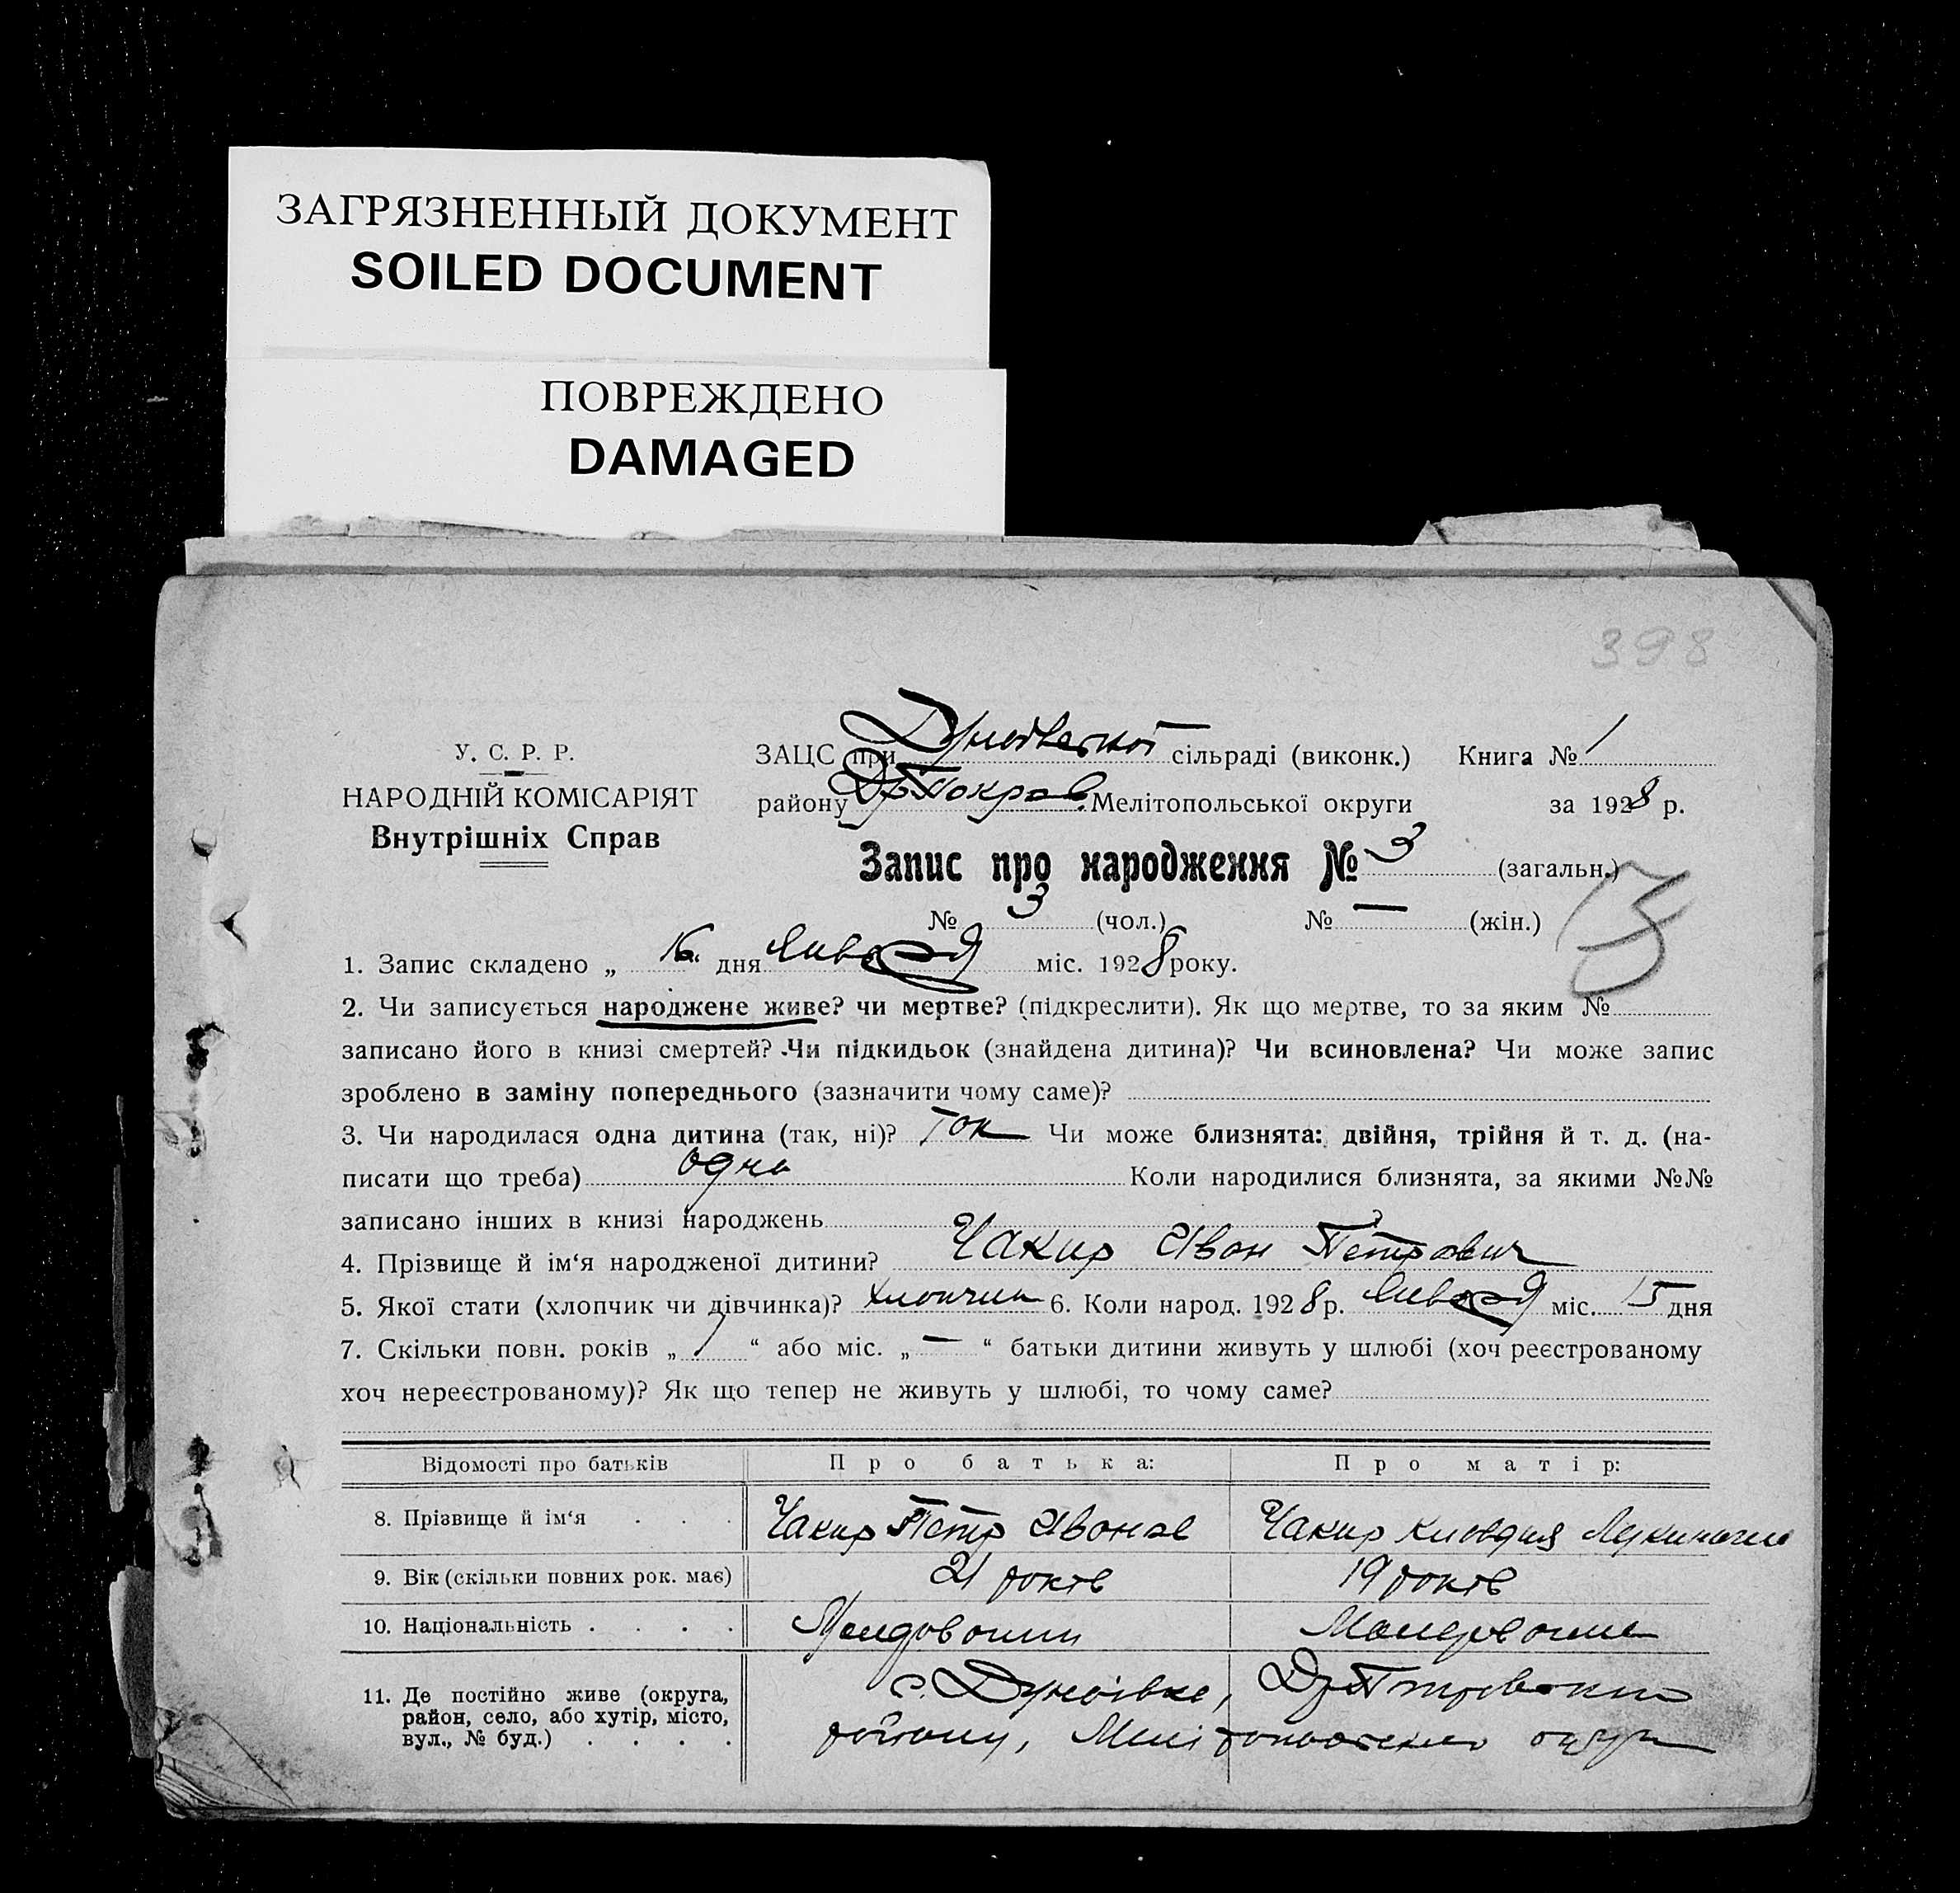 ЗАГРЯЗНЕННЫЙ ДОКУМЕНТ
SOILED DOCUMENT
ПОВРЕЖДЕНО
DAMAGED
398
У. С. Р. Р.
НАРОДНІЙ КОМІСАРІЯТ
Внутрішніх Справ
ЗАЦС при сільраді (виконк.) Книга № 1
району Мелітопольської округи за 1928 р.
Запис про народження № 3 (загальн.)
3
№ 3 (чол.) № — (жін.)
1. Запис складено „ 16 “ дня января міс. 1928 року.
2. Чи записується народжене живе? чи мертве? (підкреслити). Як що мертве, то за яким №
записано його в книзі смертей? Чи підкидьок (знайдена дитина)? Чи всиновлена? Чи може запис
зроблено в заміну попереднього (зазначити чому саме)?
3. Чи народилася одна дитина (так, ні)? так Чи може близнята: двійня, трійня й т. д. (на-
писати що треба) одна Коли народилися близнята, за якими №№
записано інших в книзі народжень
4. Прізвище й ім‘я народженої дитини? Чакир Иван Петрович
5. Якої стати (хлопчик чи дівчинка)? хлопчик 6. Коли народ. 1928 р. января міс. 15 дня
7. Скільки повн. років „ 1 “ або міс. „ — “ батьки дитини живуть у шлюбі (хоч реєстрованому
хоч нереєстрованому)? Як що тепер не живуть у шлюбі, то чому саме?
Відомості про батьків Про батька: Про матір:
8. Прізвище й ім‘я . . . Чакир Петр Иванов Чакир Клавдия
9. Вік (скільки повних рок. має) 21 років 19 років
10. Національність . . . .
11. Де постійно живе (округа,
район, село, або хутір, місто,
вул., № буд.) . . . .
с. Дунаівка,
району, округи